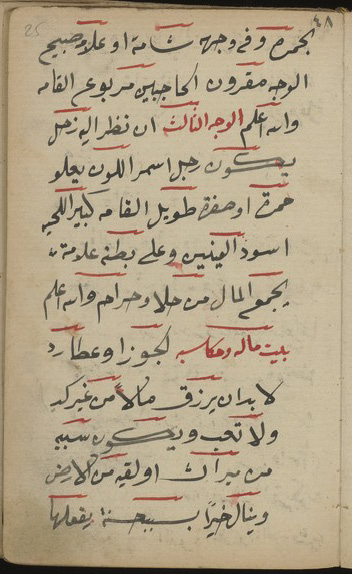 ٤٨
25
بحمرة وفي وجهه شامة او علامة صبيح
الوجه مقرون الحاجبين مربوع القامه
والله اعلم الوجه الثالث ان نظر اليه زحل
يكون رجل اسمر اللون يعلو
حمرة او صفرة طويل القامه كبير اللحيه
اسود العينين وعلى بطنه علامة
يجمع المال من حلال وحرام والله اعلم
بيت ماله ومكاسبه الجوزا وعطارد
لا بد ان يرزق مالاً من غير كد
ولا تعب ويكون سببه
من ميراث او لقيه من الارض
وينال خيراً بسبب حسنة يفعلها